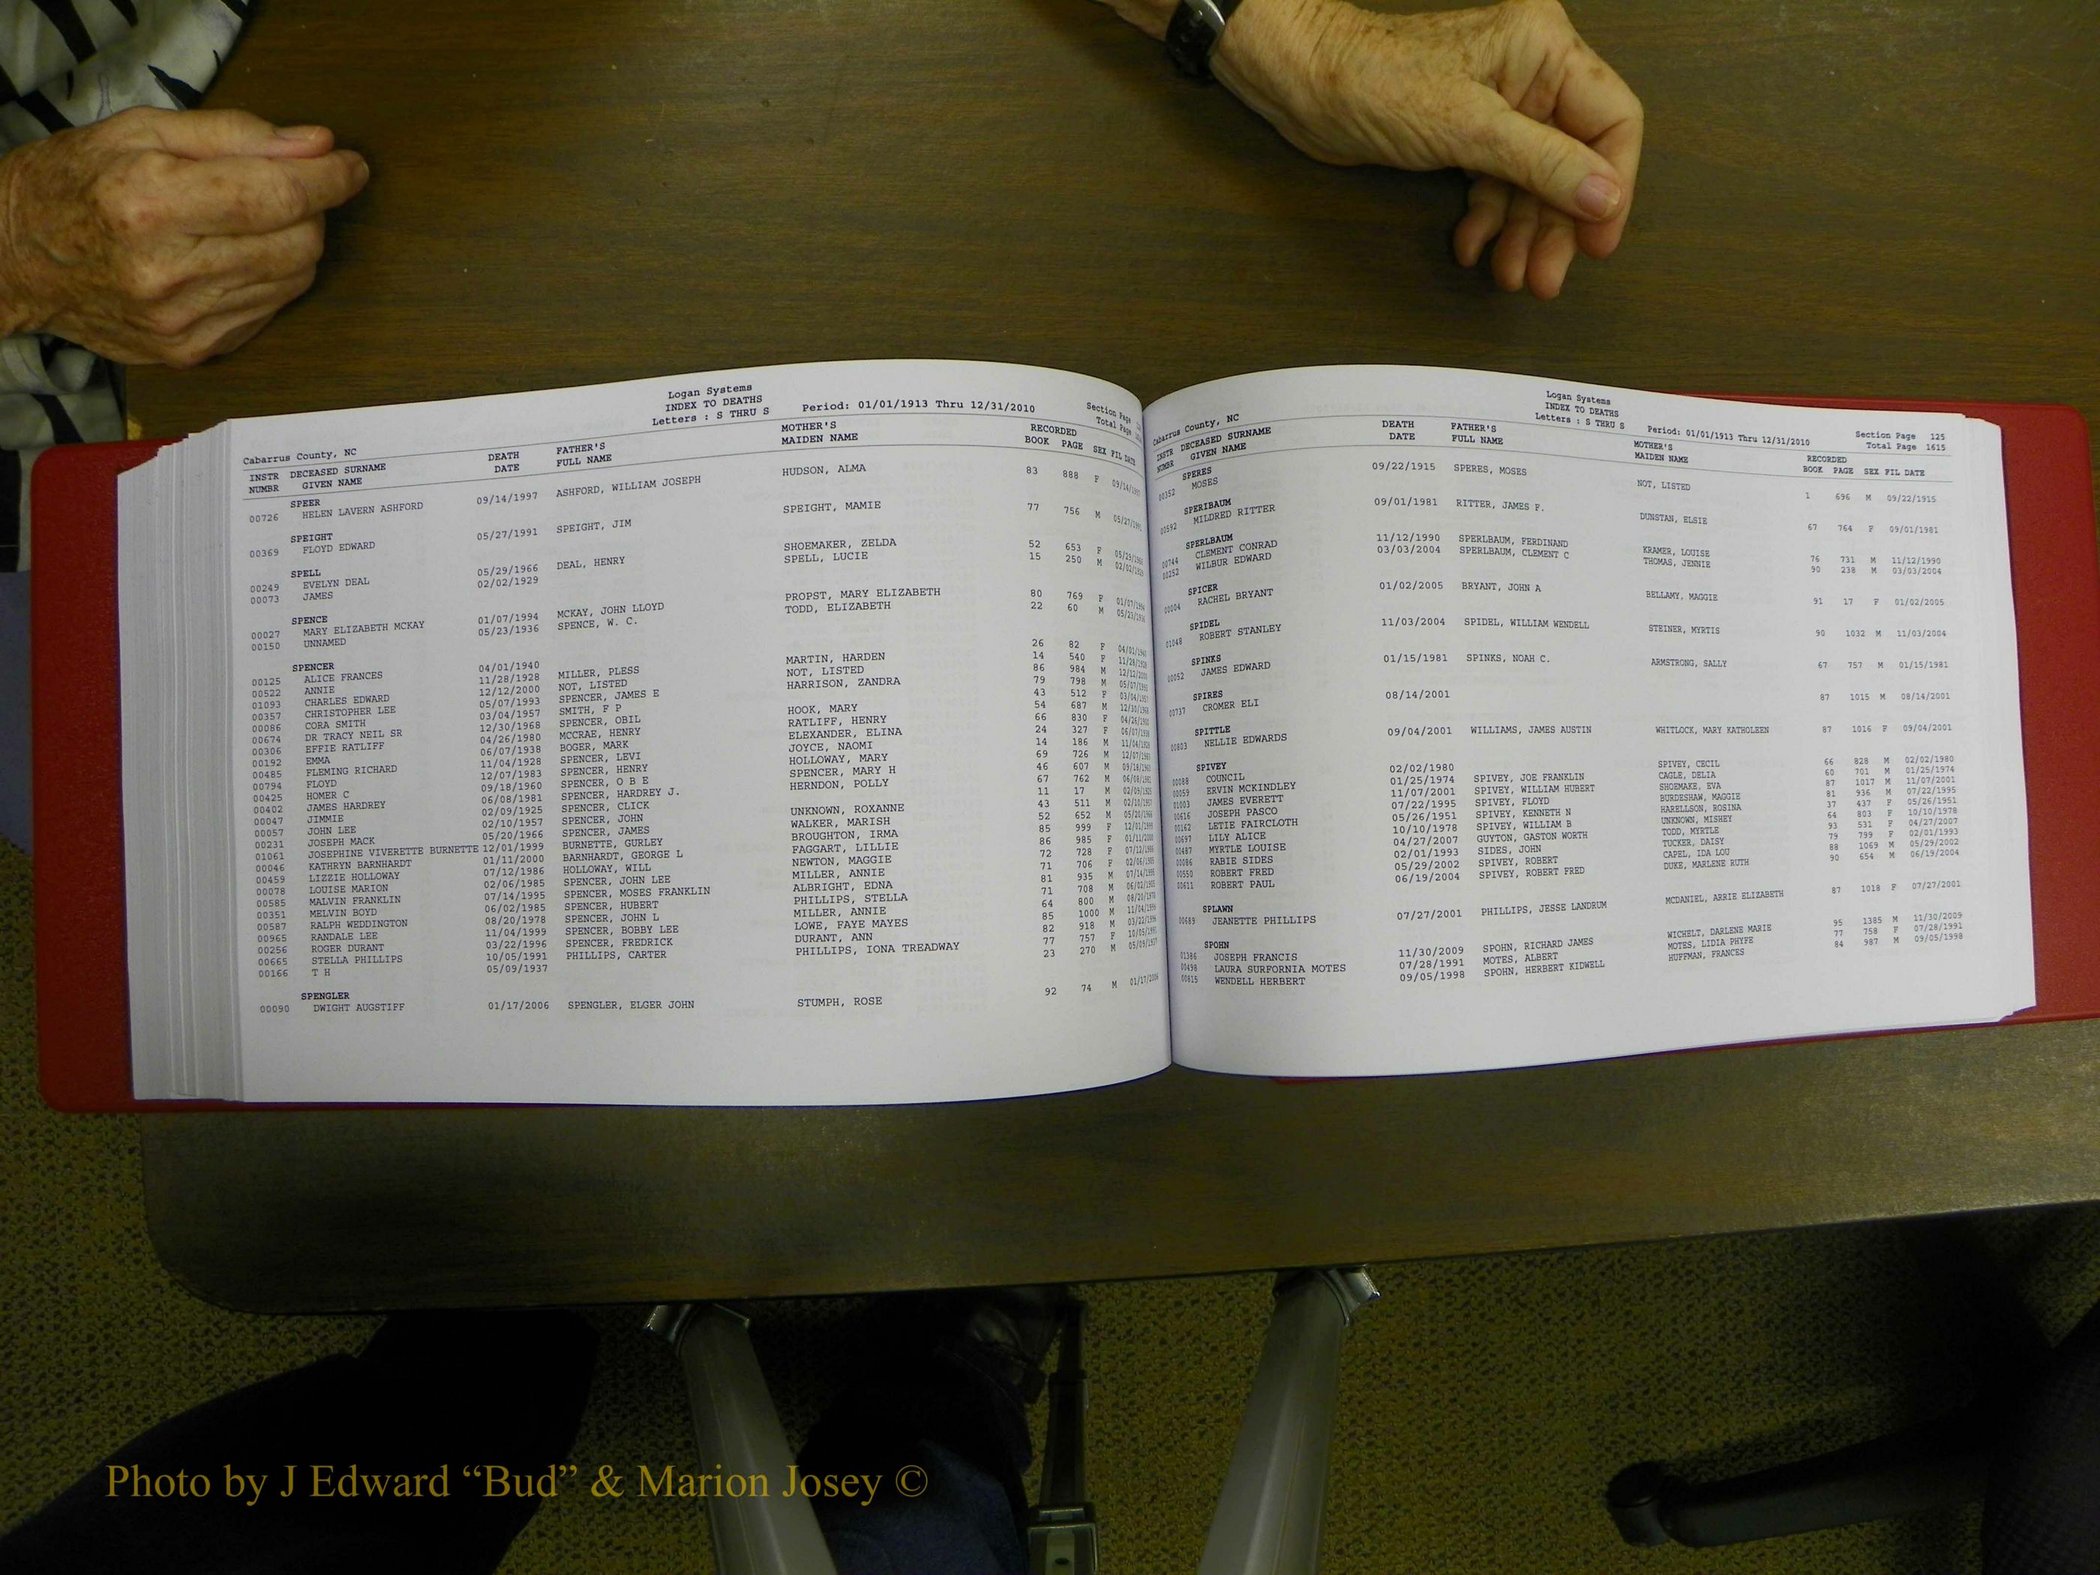 Logan Systems
INDEX TO DEATHS
Letters : S THRU S Period: 01/01/1913 Thru 12/31/2010 Section Page
Cabarrus County, NC Total Page
INSTR DECEASED SURNAME DEATH FATHER'S MOTHER'S RECORDED
NUMBR GIVEN NAME DATE FULL NAME MAIDEN NAME BOOK PAGE SEX FIL DATE
SPEER
00726 HELEN LAVERN ASHFORD 09/14/1997 ASHFORD, WILLIAM JOSEPH HUDSON, ALMA 83 888 F 09/14/1997
SPEIGHT
00369 FLOYD EDWARD 05/27/1991 SPEIGHT, JIM SPEIGHT, MAMIE 77 756 M 05/27/1991
SPELL
00249 EVELYN DEAL 05/29/1966 DEAL, HENRY SHOEMAKER, ZELDA 52 653 F 05/29/1966
00073 JAMES 02/02/1929 SPELL, LUCIE 15 250 M 02/02/1929
SPENCE
00027 MARY ELIZABETH MCKAY 01/07/1994 MCKAY, JOHN LLOYD PROPST, MARY ELIZABETH 80 769 F 01/07/1994
00150 UNNAMED 05/23/1936 SPENCE, W. C. TODD, ELIZABETH 22 60 M 05/23/1936
SPENCER
00125 ALICE FRANCES 04/01/1940 26 82 F 04/01/1940
00522 ANNIE 11/28/1928 MILLER, PLESS MARTIN, HARDEN 14 540 F 11/28/1928
01093 CHARLES EDWARD 12/12/2000 NOT, LISTED NOT, LISTED 86 984 M 12/12/2000
00357 CHRISTOPHER LEE 05/07/1993 SPENCER, JAMES E HARRISON, ZANDRA 79 798 M 05/07/1993
00086 CORA SMITH 03/04/1957 SMITH, F P 43 512 F 03/04/1957
00674 DR TRACY NEIL SR 12/30/1968 SPENCER, OBIL HOOK, MARY 54 687 M 12/30/1968
00306 EFFIE RATLIFF 04/26/1980 MCCRAE, HENRY RATLIFF, HENRY 66 830 F 04/26/1980
00192 EMMA 06/07/1938 BOGER, MARK ELEXANDER, ELINA 24 327 F 06/07/1938
00485 FLEMING RICHARD 11/04/1928 SPENCER, LEVI JOYCE, NAOMI 14 186 M 11/04/1928
00794 FLOYD 12/07/1983 SPENCER, HENRY HOLLOWAY, MARY 69 726 M 12/07/1983
00425 HOMER C 09/18/1960 SPENCER, O B E SPENCER, MARY H 46 607 M 09/18/1960
00402 JAMES HARDREY 06/08/1981 SPENCER, HARDREY J. HERNDON, POLLY 67 762 M 06/08/1981
00047 JIMMIE 02/09/1925 SPENCER, CLICK 11 17 M 02/09/1925
00057 JOHN LEE 02/10/1957 SPENCER, JOHN UNKNOWN, ROXANNE 43 511 M 02/10/1957
00231 JOSEPH MACK 05/20/1966 SPENCER, JAMES WALKER, MARISH 52 652 M 05/20/1966
01061 JOSEPHINE VIVERETTE BURNETTE 12/01/1999 BURNETTE, GURLEY BROUGHTON, IRMA 85 999 F 12/01/1999
00046 KATHRYN BARNHARDT 01/11/2000 BARNHARDT, GEORGE L FAGGART, LILLIE 86 985 F 01/11/2000
00459 LIZZIE HOLLOWAY 07/12/1986 HOLLOWAY, WILL NEWTON, MAGGIE 72 728 F 07/12/1986
00078 LOUISE MARION 02/06/1985 SPENCER, JOHN LEE MILLER, ANNIE 71 706 F 02/06/1985
00585 MALVIN FRANKLIN 07/14/1995 SPENCER, MOSES FRANKLIN ALBRIGHT, EDNA 81 935 M 07/14/1995
00351 MELVIN BOYD 06/02/1985 SPENCER, HUBERT PHILLIPS, STELLA 71 708 M 06/02/1985
00587 RALPH WEDDINGTON 08/20/1978 SPENCER, JOHN L MILLER, ANNIE 64 800 M 08/20/1978
00965 RANDALE LEE 11/04/1999 SPENCER, BOBBY LEE LOWE, FAYE MAYES 85 1000 M 11/04/1999
00256 ROGER DURANT 03/22/1996 SPENCER, FREDRICK DURANT, ANN 82 918 M 03/22/1996
00665 STELLA PHILLIPS 10/05/1991 PHILLIPS, CARTER PHILLIPS, IONA TREADWAY 77 757 F 10/05/1991
00166 T H 05/09/1937 23 270 M 05/09/1937
SPENGLER
00090 DWIGHT AUGSTIFF 01/17/2006 SPENGLER, ELGER JOHN STUMPH, ROSE 92 74 M 01/17/2006
Logan Systems
INDEX TO DEATHS
Letters : S THRU S Period: 01/01/1913 Thru 12/31/2010 Section Page 125
Cabarrus County, NC Total Page 1615
INSTR DECEASED SURNAME DEATH FATHER'S MOTHER'S RECORDED
NUMBR GIVEN NAME DATE FULL NAME MAIDEN NAME BOOK PAGE SEX FIL DATE
SPERES
00352 MOSES 09/22/1915 SPERES, MOSES NOT, LISTED 1 696 M 09/22/1915
SPERIBAUM
00592 MILDRED RITTER 09/01/1981 RITTER, JAMES F. DUNSTAN, ELSIE 67 764 F 09/01/1981
SPERLBAUM
00744 CLEMENT CONRAD 11/12/1990 SPERLBAUM, FERDINAND KRAMER, LOUISE 76 731 M 11/12/1990
00252 WILBUR EDWARD 03/03/2004 SPERLBAUM, CLEMENT C THOMAS, JENNIE 90 238 M 03/03/2004
SPICER
00004 RACHEL BRYANT 01/02/2005 BRYANT, JOHN A BELLAMY, MAGGIE 91 17 F 01/02/2005
SPIDEL
01048 ROBERT STANLEY 11/03/2004 SPIDEL, WILLIAM WENDELL STEINER, MYRTIS 90 1032 M 11/03/2004
SPINKS
00052 JAMES EDWARD 01/15/1981 SPINKS, NOAH C. ARMSTRONG, SALLY 67 757 M 01/15/1981
SPIRES
00737 CROMER ELI 08/14/2001 87 1015 M 08/14/2001
SPITTLE
00803 NELLIE EDWARDS 09/04/2001 WILLIAMS, JAMES AUSTIN WHITLOCK, MARY KATHOLEEN 87 1016 F 09/04/2001
SPIVEY
00088 COUNCIL 02/02/1980 SPIVEY, CECIL 66 828 M 02/02/1980
00059 ERVIN MCKINDLEY 01/25/1974 SPIVEY, JOE FRANKLIN CAGLE, DELIA 60 701 M 01/25/1974
01003 JAMES EVERETT 11/07/2001 SPIVEY, WILLIAM HUBERT SHOEMAKE, EVA 87 1017 M 11/07/2001
00616 JOSEPH PASCO 07/22/1995 SPIVEY, FLOYD BURDESHAW, MAGGIE 81 936 M 07/22/1995
00162 LETIE FAIRCLOTH 05/26/1951 SPIVEY, KENNETH N HARELLSON, ROSINA 37 437 F 05/26/1951
00697 LILY ALICE 10/10/1978 SPIVEY, WILLIAM B UNKNOWN, MISHEY 64 803 F 10/10/1978
00487 MYRTLE LOUISE 04/27/2007 GUYTON, GASTON WORTH TODD, MYRTLE 93 531 F 04/27/2007
00086 RABIE SIDES 02/01/1993 SIDES, JOHN TUCKER, DAISY 79 799 F 02/01/1993
00550 ROBERT FRED 05/29/2002 SPIVEY, ROBERT CAPEL, IDA LOU 88 1069 M 05/29/2002
00611 ROBERT PAUL 06/19/2004 SPIVEY, ROBERT FRED DUKE, MARLENE RUTH 90 654 M 06/19/2004
SPLAWN
00689 JEANETTE PHILLIPS 07/27/2001 PHILLIPS, JESSE LANDRUM MCDANIEL, ARRIE ELIZABETH 87 1018 F 07/27/2001
SPOHN
01386 JOSEPH FRANCIS 11/30/2009 SPOHN, RICHARD JAMES WICHELT, DARLENE MARIE 95 1385 M 11/30/2009
00498 LAURA SURFORNIA MOTES 07/28/1991 MOTES, ALBERT MOTES, LIDIA PHYFE 77 758 F 07/28/1991
00815 WENDELL HERBERT 09/05/1998 SPOHN, HERBERT KIDWELL HUFFMAN, FRANCES 84 987 M 09/05/1998
Photo by J Edward “Bud” & Marion Josey ©